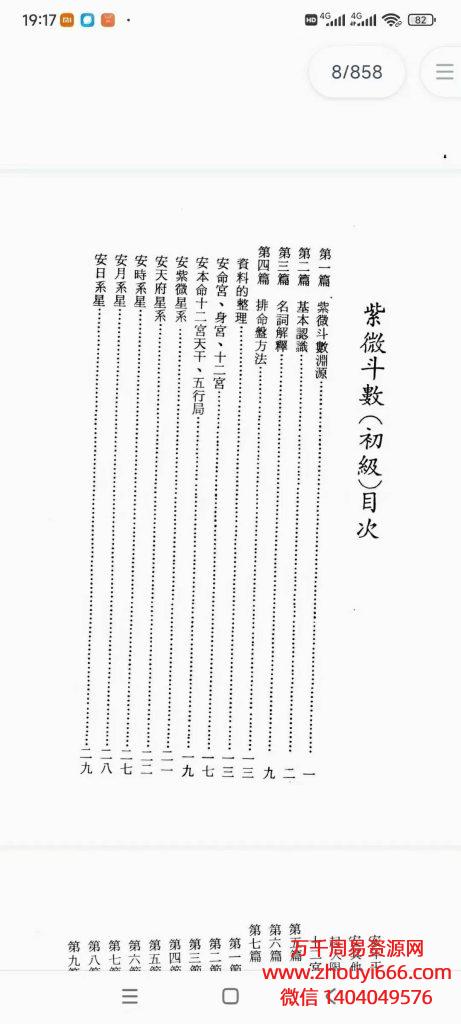 19:17
HD 4G 4G 82
8/858
紫微斗數(初級)目次
第一篇 紫微斗數淵源……一
第二篇 基本認識……二
第三篇 名詞解釋……九
第四篇 排命盤方法……一三
資料的整理……一三
安命宮、身宮、十二宮……一七
安本命十二宮天干、五行局……一九
安紫微星系……二一
安天府星系……二二
安時系星……二七
安月系星……二八
安日系星……二九
第六篇
第七篇
第一
第二
第三
第四
第五
第六
第七
第八
第九
万千周易资源网
www.zhouyi666.com
微信 1404049576